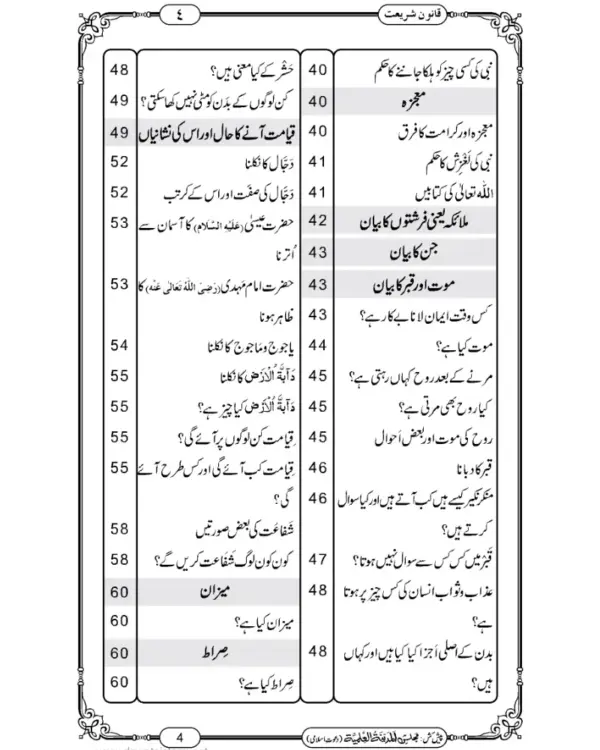 قانون شریعت ٤
نبی کی کسی چیز کو ہلکا جاننے کا حکم 40
معجزہ 40
معجزہ اور کرامت کا فرق 40
نبی کی لَغْزِش کا حکم 41
اللہ تعالیٰ کی کتابیں 41
ملائکہ یعنی فرشتوں کا بیان 42
جن کا بیان 43
موت اور قبر کا بیان 43
کس وقت ایمان لانا بے کار ہے؟ 43
موت کیا ہے؟ 44
مرنے کے بعد روح کہاں رہتی ہے؟ 45
کیا روح بھی مرتی ہے؟ 45
روح کی موت اور بعض اَحوال 45
قبر کا دبانا 46
منکر نکیر کیسے ہیں کب آتے ہیں اور کیا سوال 46
کرتے ہیں؟
قَبْر میں کس کس سے سوال نہیں ہوتا؟ 47
عذاب و ثواب انسان کی کس چیز پر ہوتا 48
ہے؟
بدن کے اصلی اَجزا کیا کیا ہیں اور کہاں 48
ہیں؟
حَشْر کے کیا معنی ہیں؟ 48
کن لوگوں کے بدَن کو مٹی نہیں کھا سکتی؟ 49
قیامت آنے کا حال اور اس کی نشانیاں 49
دَجّال کا نکلنا 52
دَجّال کی صفَت اور اس کے کرتب 52
حضرت عیسیٰ (عَلَیْہِ السَّلَام) کا آسمان سے 53
اُترنا
حضرت امام مَہدی (رَضِیَ اللہُ تَعَالٰی عَنْہُ) کا 53
ظاہر ہونا
یاجوج و ماجوج کا نکلنا 54
دَآبَّۃُ الْاَرْض کا نکلنا 55
دَآبَّۃُ الْاَرْض کیا چیز ہے؟ 55
قِیامت کن لوگوں پر آئے گی؟ 55
قِیامت کب آئے گی اور کس طرح آئے 55
گی؟
شَفاعَت کی بعض صورتیں 58
کون کون لوگ شَفاعَت کریں گے؟ 58
میزان 60
میزان کیا ہے؟ 60
صِراط 60
صِراط کیا ہے؟ 60
پیش کش: مجلس المدینۃ العلمیۃ (دعوت اسلامی) 4